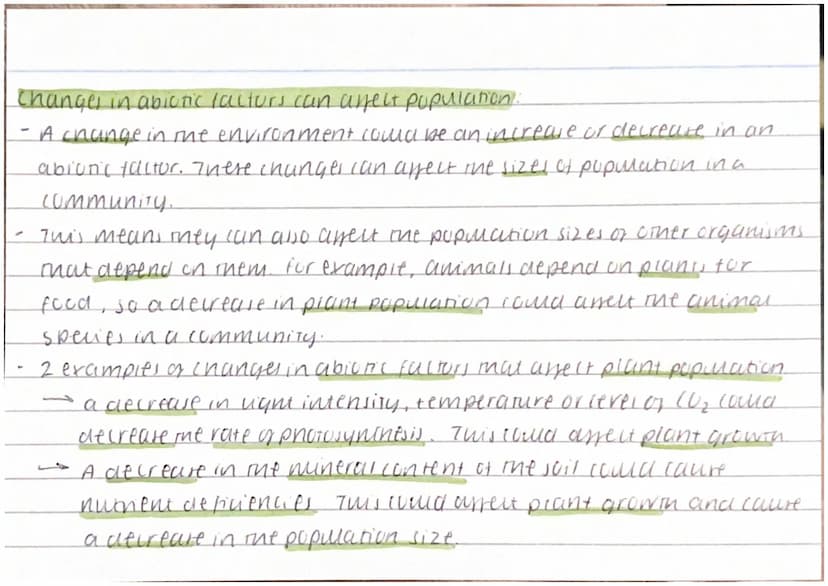 Changes in abiotic factors can affect population:
- A change in the environment could be an increase or decrease in an
abiotic factor. These changes can affect the sizes of population in a
community.
- This means they can also affect the population sizes of other organisms
that depend on them. For example, animals depend on plants for
food, so a decrease in plant population could affect the animal
species in a community.
- 2 examples of changes in abiotic factors that affect plant population
→ a decrease in light intensity, temperature or level of CO₂ could
decrease the rate of photosynthesis. This could affect plant growth
→ A decrease in the mineral content of the soil could cause
nutrient deficiencies. This could affect plant growth and cause
a decrease in the population size.